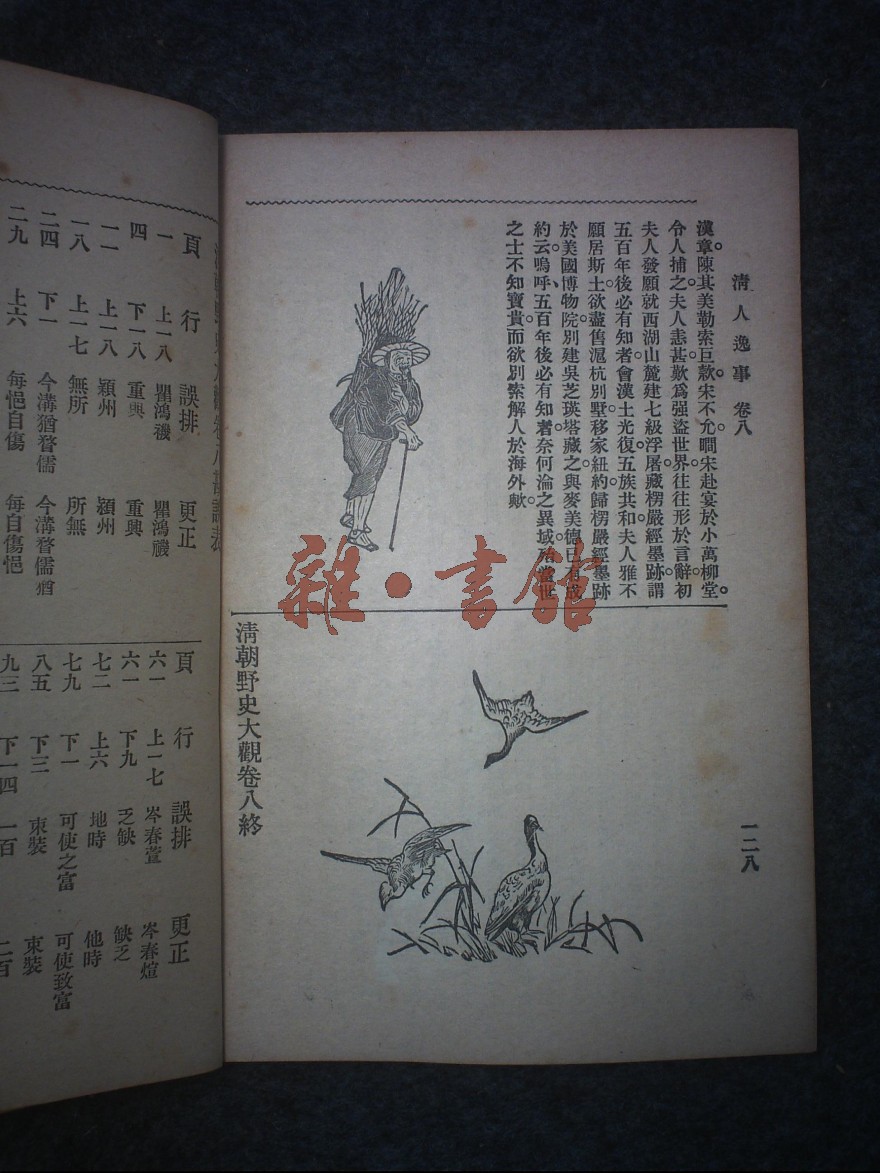 清人逸事 卷八
一二八
漢章陳其美勒索巨欵宋不允嗣宋赴宴於小萬柳堂。
令人捕之夫人恚甚歎爲强盜世界往往形於言辭初
夫人發願就西湖山麓建七級浮屠藏楞嚴經墨跡謂
五百年後必有知者會漢土光復五族共和夫人雅不
願居斯土欲盡舊滬杭別墅移家紐約歸楞嚴經墨跡
於美國博物院別建吳芝瑛塔藏之與麥美德已有成
約云嗚呼五百年後必有知者奈何淪之異域殆當世
之士不知寶貴而欲別索解人於海外歟。
清朝野史大觀卷八終
雜·書館
頁 行 誤排 更正
一 上一八 瞿鴻禨 瞿鴻禨
四 下一八 重興 重輿
一一 上一八 穎州 潁州
一八 上一七 無所 所無
二四 下一 今溝猶瞀儒 今溝瞀儒猶
二九 上六 每悒自傷 每自傷悒
頁 行 誤排 更正
六一 上一七 岑春萱 岑春煊
六一 下九 乏缺 缺乏
七二 上六 地時 他時
七九 下一 可使之富 可使致富
八五 下三 束裝 束裝
九三 下一四 一百 二百